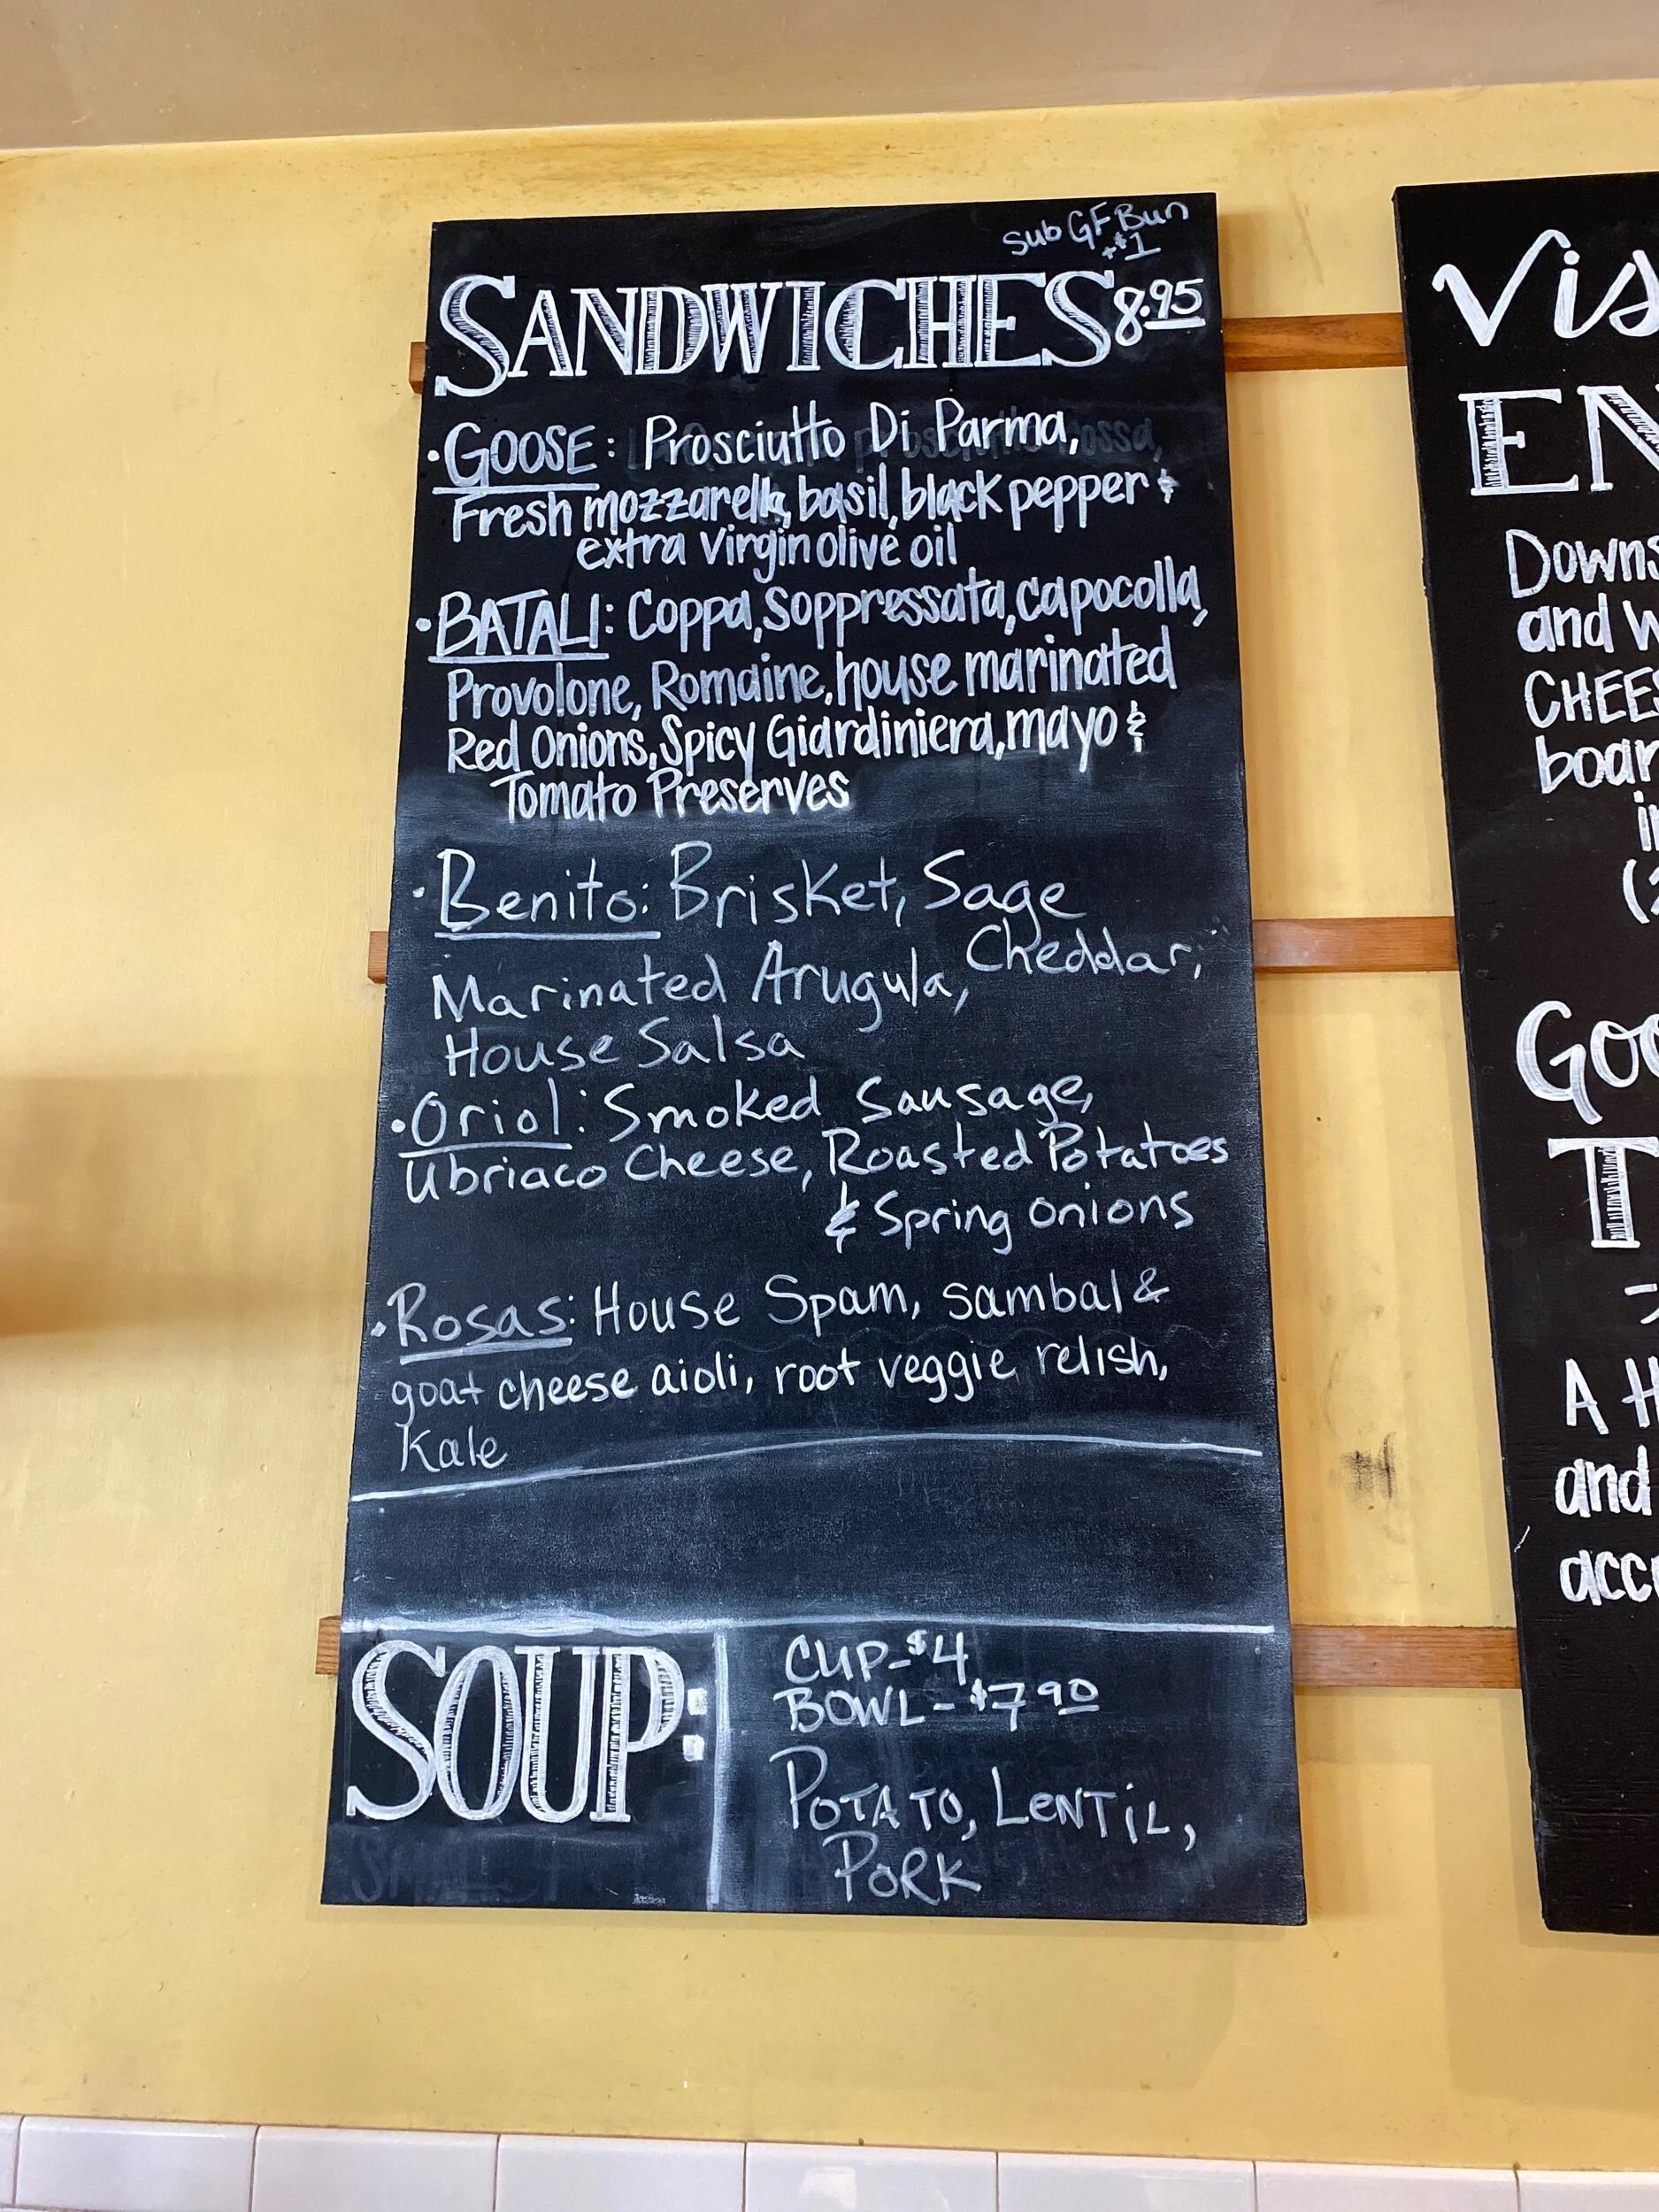 Sub GF Bun
+$1
SANDWICHES 8.95
• GOOSE: Prosciutto Di Parma,
Fresh mozzarella, basil, black pepper &
extra virgin olive oil
• BATALI: Coppa, Soppressata, capocolla,
Provolone, Romaine, house marinated
Red Onions, Spicy Giardiniera, mayo &
Tomato Preserves
• Benito: Brisket, Sage
Cheddar,
Marinated Arugula,
House Salsa
• Oriol: Smoked Sausage,
Ubriaco Cheese, Roasted Potatoes
& Spring onions
• Rosas: House Spam, sambal &
goat cheese aioli, root veggie relish,
Kale
SOUP:
CUP - $4
BOWL - $7 90
POTATO, LENTiL,
PORK
Vis
EN
Downs
and w
CHEES
boar
in
(2
Goo
T
A H
and
acc